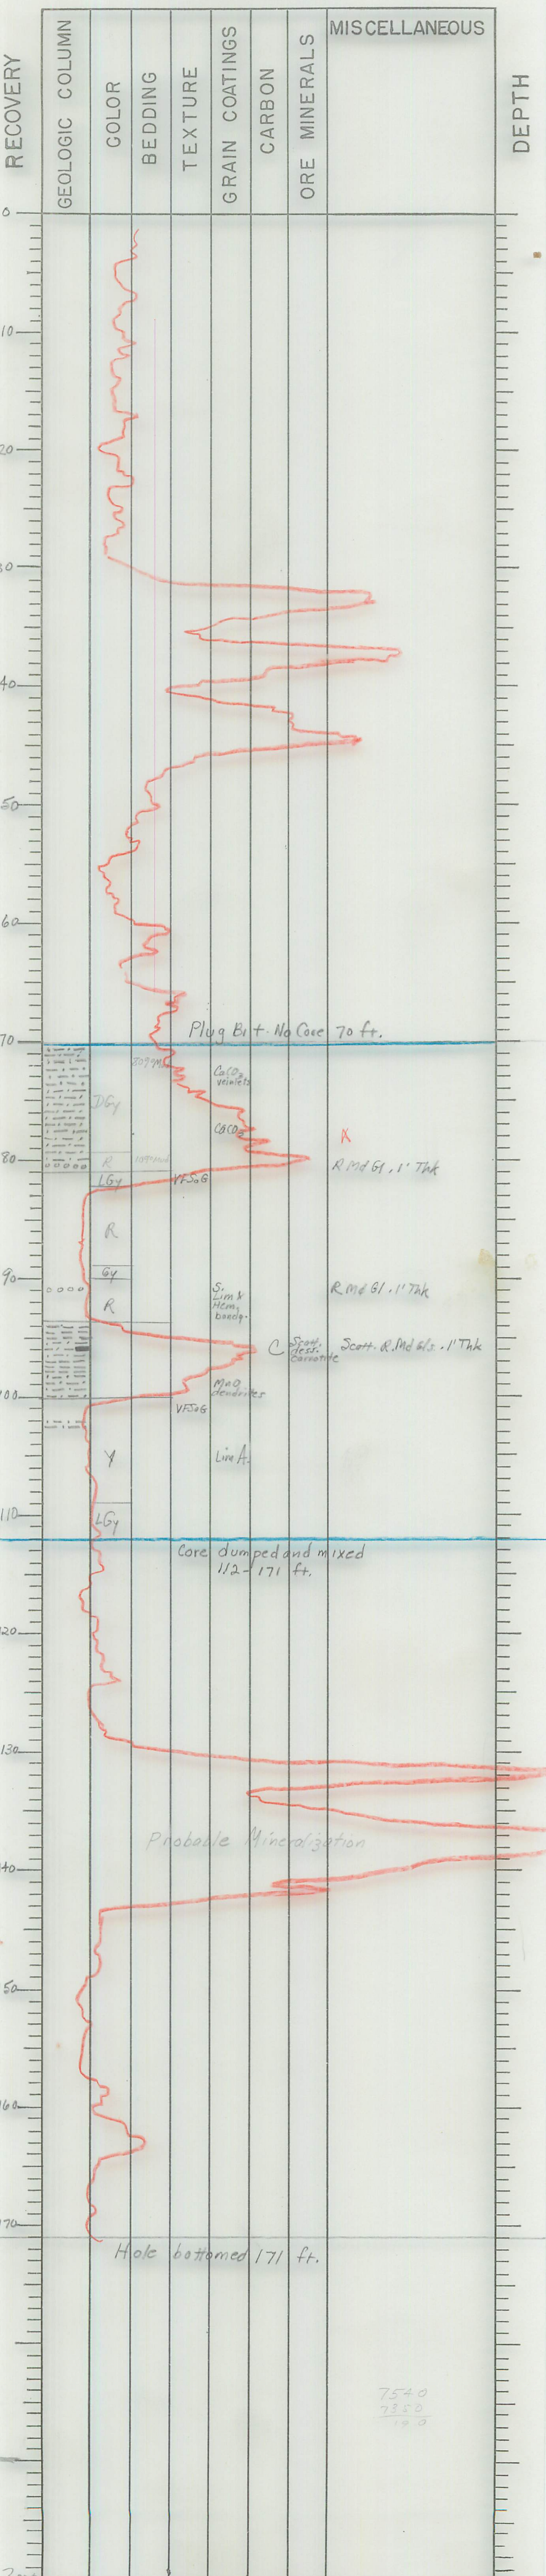 RECOVERY
GEOLOGIC COLUMN
COLOR
BEDDING
TEXTURE
GRAIN COATINGS
CARBON
ORE MINERALS
MISCELLANEOUS
DEPTH
0
10
20
30
40
50
60
Plug Bit - No Core 70 ft.
70
CaCO3
veinlets
DGy
CaCO3
R
80
R Md Gl. 1' Thk
LGy
VFSaG
R
Gy
90
R Md Gl. 1' Thk
S.
Lim &
Hem.
R
C
Scatt.
diss.
carnotite
Scatt. R. Md Gls. 1' Thk
MnO
dendrites
100
VFSaG
Y
Lim A.
110
LGy
Core dumped and mixed
112-171 ft.
120
130
Probable Mineralization
140
50
160
170
Hole bottomed 171 ft.
7540
7350
190